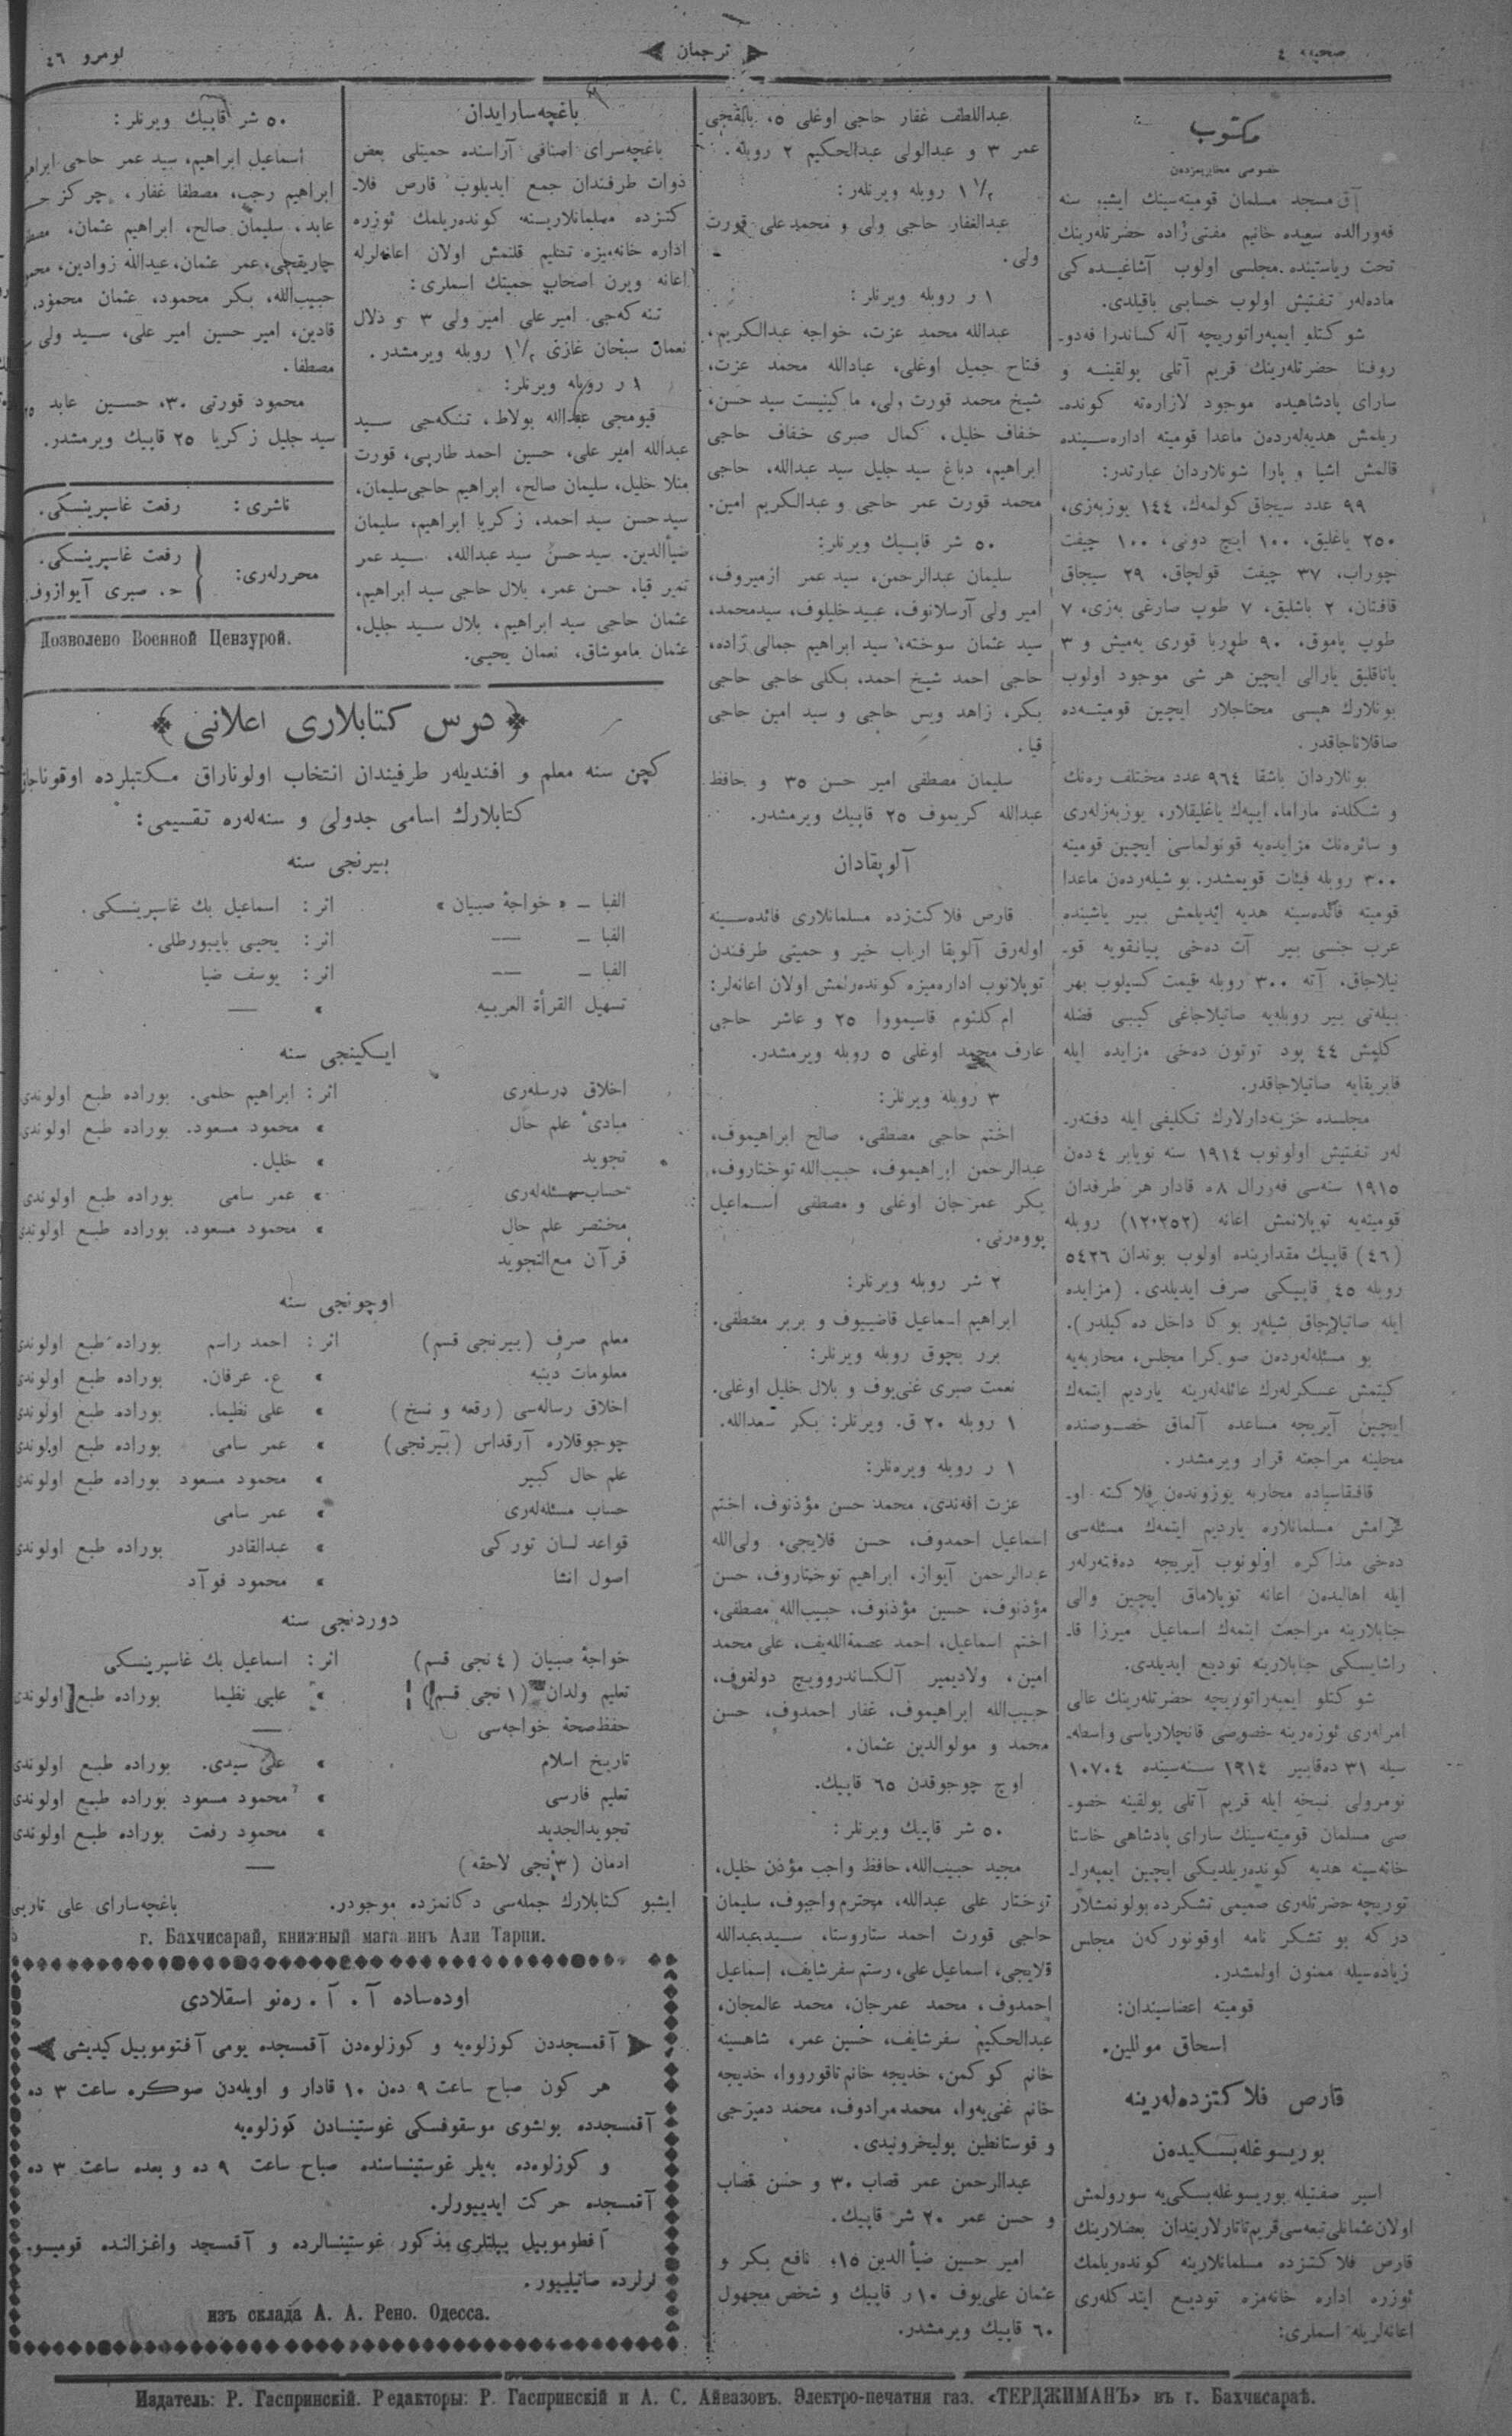 صحیفه ٤
ترجمان
نومرو ٤٦
مكتوب
خصوصی مخابریمزدن
آق مسجد مسلمان قومیته‌سینك ایشبو سنه
فه‌ورالده سعیده خانیم مفتی‌زاده حضرتله‌رینك
تحت ریاستینده مجلسی اولوب آشاغیـده‌كی
ماده‌له‌ر تفتیش اولوب خسابی باقیلدی.
شوكتلو ایمپه‌راتوریچه آله‌كساندرا فه‌دو-
روفنا حضرتله‌رینك قریم آتلی پولقینـه و
سارای پادشاهیده موجود لازاره‌ته كونده-
ریلمش هدیه‌له‌ردن ماعدا قومیته اداره‌سـینده
قالمش اشیا و پارا شونلاردان عبارتدر:
٩٩ عدد سیجاق كولمه‌ك، ١٤٤ یوزبه‌زی،
٢٥٠ یاغلیق، ١٠٠ ایچ دونی، ١٠٠ چیفت
چوراب، ٣٧ چیفت قولچاق، ٢٩ سیجاق
قافتان، ٢ باشلیق، ٧ طوپ صارغی به‌زی، ٧
طوپ پاموق، ٩٠ طوربا قوری یه‌میش و ٣
یاتاقلیق یارالی ایچین هر شی موجود اولوب
بونلارك هپسی محتاجلار ایچین قومیتـه‌ده
صاقلاناجاقدر.
بونلاردان باشقا ٩٦٤ عدد مختلف ره‌نك
و شكلده ماراما، ایپه‌ك یاغلیقلار، یوزبه‌زله‌ری
و سائره‌نك مزایده‌یه قونولماسی ایچین قومیته
٣٠٠ روبله فیئات قویمشدر. بو شیله‌رده‌ن ماعدا
قومیته فائده‌سینه هدیه ایدیلمش بیر یاشینده
عرب جنسی بیر آت ده‌خی پیانقویه قو-
نیلاجاق، آته ٣٠٠ روبله قیمت كسیلوب بهر
بیله‌تی بیر روبله‌یه صاتیلاجاغی كیبـی فضله
كلمش ٤٤ پود توتون ده‌خی مزایده ایله
فابریقایه صاتیلاجاقدر.
مجلسده خزینه‌دارلارك تكلیفی ایله دفتر-
له‌ر تفتیش اولونوب ١٩١٤ سنه نویابر ٤ ده‌ن
١٩١٥ سنه‌سی فه‌ورال ٨ه قادار هر طرفدان
قومیته‌یه توپلانمش اعانه (١٢٠٢٥٢) روبله
(٤٦) قاپیك مقدارینده اولوب بوندان ٥٤٢٦
روبله ٤٥ قاپیكی صرف ایدیلدی. (مزایده
ایله صاتیلاجاق شیله‌ر بوكا داخل ده‌كیلدر).
بو مسئله‌له‌رده‌ن صوكرا مجلس، محاربه‌یه
كیتمش عسكرله‌رك عائله‌له‌رینه یاردیم ایتمه‌ك
ایچین آیریجه مساعده آلماق خصـوصنده
محلینه مراجعته قرار ویرمشدر.
قافقاسیاده محاربه یوزونده‌ن فلاكته او-
غرامش مسلمانلاره یاردیم ایتمه‌ك مسئله‌سی
ده‌خی مذاكره اولونوب آیریجه ده‌فته‌رله‌ر
ایله اهالیده‌ن اعانه توپلاماق ایچین والی
جنابلارینه مراجعت ایتمه‌ك اسماعیل میرزا قا-
راشایسكی جنابلارینه تودیع ایدیلدی.
شوكتلو ایمپه‌راتوریچه حضرتله‌رینك عالی
امرله‌ری ئوزه‌رینه خصوصی قانچلاریاسی واسطه-
سیله ٣١ ده‌قابیر ١٩١٤ سـنه‌سینده ١٠٧٠٤
نومرولی نسخه ایله قریم آتلی پولقینه خصو-
صی مسلمان قومیته‌سینك سارای پادشاهی خاستا
خانه‌سینه هدیه كونده‌ریلدیكی ایچین ایمپه‌را-
توریچه حضرتله‌ری صمیمی تشكرده بولونمشلار
در كه بو تشكر نامه اوقونوركه‌ن مجلس
زیاده‌سیله ممنون اولمشدر.
قومیته اعضاسیندان:
اسحاق موللین.
قارص فلاكتزده‌له‌رینه
بوریسوغله‌بسكیده‌ن
اسیر صفتیله بوریسوغله‌بسكی‌یه سورولمش
اولان عثمانلی تبعه‌سی قریم تاتارلاریندان بعضلارینك
قارص فلاكتزده مسلمانلارینه كونده‌ریلمك
ئوزره اداره خانه‌مزه تودیـع ایتدكله‌ری
اعانه‌لریله اسملری:
عبداللطف غفار حاجی اوغلی ٥، بالقچی
عمر ٣ و عبدالولی عبدالحكیم ٢ روبله.
١ ١/٢ روبله ویرنله‌ر:
عبدالغفار حاجی ولی و محمد علی قورت
ولی.
١ ر روبله ویرنلر:
عبدالله محمد عزت، خواجه عبدالكریم،
فتاح جمیل اوغلی، عبادالله محمد عزت،
شیخ محمد قورت ولی، ماكینیست سید حسن،
خفاف خلیل، كمال صبری خفاف حاجی
ابراهیم، دباغ سید جلیل سید عبدالله، حاجی
محمد قورت عمر حاجی و عبدالكریم امین.
٥٠ شر قاپـیك ویرنلر:
سلیمان عبدالرحمن، سید عمر ازمیروف،
امیر ولی آرسلانوف، عبید خلیلوف، سیدمحمد،
سید عثمان سوخته، سید ابراهیم جمالی زاده،
حاجی احمد شیخ احمد، بكلی حاجی حاجی
بكر، زاهد ویس حاجی و سید امین حاجی
قیا.
سلیمان مصطفی امیر حسن ٣٥ و حافظ
عبدالله كریموف ٢٥ قاپیك ویرمشدر.
آلوپقادان
قارص فلاكتزده مسلمانلاری فائده‌سـینه
اوله‌رق آلوپقا ارباب خیر و حمیتی طرفندن
توپلانوب اداره‌میزه كونده‌رلمش اولان اعانه‌لر:
ام كلثوم قاسیمووا ٢٥ و عاشر حاجی
عارف محمد اوغلی ٥ روبله ویرمشدر.
٣ روبله ویرنلر:
اختم حاجی مصطفی، صالح ابراهیموف،
عبدالرحمن ابراهیموف، حبیب‌الله توختاروف،
بكر عمرجان اوغلی و مصطفی اسـماعیل
پووه‌رتی.
٢ شر روبله ویرنلر:
ابراهیم اسماعیل قاضییوف و بربر مصطفی.
برر بچوق روبله ویرنلر:
نعمت صبری غنی‌یوف و بلال خلیل اوغلی.
١ روبله ٢٠ ق. ویرنلر: بكر سعدالله.
١ ر روبله ویره‌نلر:
عزت افه‌ندی، محمد حسن مؤذنوف، اختم
اسماعیل احمدوف، حسن قلایجی، ولی‌الله
عبدالرحمن آیواز، ابراهیم توختاروف، حسن
مؤذنوف، حسین مؤذنوف، حبیب‌الله مصطفی،
اختم اسماعیل، احمد عصمةالله‌یف، علی محمد
امین، ولادیمیر آلكساندروویچ دولغوف،
حبیب‌الله ابراهیموف، غفار احمدوف، حسن
محمد و مولوالدین عثمان.
اوچ چوجوقدن ٦٥ قاپیك.
٥٠ شر قاپیك ویرنلر:
مجید حبیب‌الله، حافظ واجب مؤذن خلیل،
توختار علی عبدالله، محترم واجبوف، سلیمان
حاجی قورت احمد ستاروستا، سـیدعبدالله
قلایجی، اسماعیل علی، رستم سفرشایف، اسماعیل
احمدوف، محمد عمرجان، محمد عالمجان،
عبدالحكیم سفرشایف، حسین عمر، شاهسینه
خانم كوكمن، خدیجه خانم تاقورووا، خدیجه
خانم غنی‌یه‌وا، محمد مرادوف، محمد دمیرجی
و قوستانطین پولیخرونیدی.
عبدالرحمن عمر قصاب ٣٠ و حسن قصاب
و حسن عمر ٢٠ شر قاپیك.
امیر حسین ضیأالدین ١٥، نافـع بكر و
عثمان علی‌یوف ١٠ر قاپیك و شخص مجهول
٦٠ قاپیك ویرمشدر.
باغچه‌سارایدان
باغچه‌سرای اصنافی آراسنده حمیتلی بعض
ذوات طرفندان جمع ایدیلوب قارص فلا-
كتزده مسلمانلارینـه كونده‌ریلمك ئوزره
اداره خانه‌میزه تسلیم قلنمش اولان اعانه‌لرله
اعانه ویرن اصحاب حمیتك اسملری:
تنه‌كه‌جی امیر علی امیر ولی ٣ و دلال
نعمان سبحان غازی ١ ١/٢ روبله ویرمشدر.
١ ر روبله ویرنلر:
قیومجی عبدالله بولاط، تنكه‌جی سـید
عبدالله امیر علی، حسین احمد طارپی، قورت
منلا خلیل، سلیمان صالح، ابراهیم حاجی سلیمان،
سید حسن سید احمد، زكریا ابراهیم، سلیمان
ضیأالدین، سید حسن سید عبدالله، سـید عمر
تمیر قیا، حسن عمر، بلال حاجی سید ابراهیم،
عثمان حاجی سید ابراهیم، بلال سـید جلیل،
عثمان ماموشاق، نعمان یحیی.
٥٠ شر قاپیك ویرنلر:
اسماعیل ابراهیم، سید عمر حاجی
ابراهیم رجب، مصطفا غفار، چركز
عابد، سلیمان صالح، ابراهیم عثمان،
چاریقچی، عمر عثمان، عبدالله زوادین،
حبیب‌الله، بكر محمود، عثمان محمود،
قادین، امیر حسین امیر علی، سـید ولی
مصطفا.
محمود قورتی ٣٠، حسـین عابد ٢٥
سید جلیل زكریا ٢٥ قاپیك ویرمشدر.
ناشری: رفعت غاسپرینسكی.
محررله‌ری: رفعت غاسپرینسكی.
ح. صبری آیوازوف
Дозволено Военной Цензурой.
درس كتابلاری اعلانی
كچن سنه معلم و افندیله‌ر طرفیندان انتخاب اولوناراق مكتبلرده اوقوناجاق
كتابلارك اسامی جدولی و سنه‌له‌ره تقسیمی:
بیرنجی سنه
الفبا — « خواجهٔ صبیان » اثر: اسماعیل بك غاسپرینسكی.
الفبا — — اثر: یحیی بایبورطلی.
الفبا — — اثر: یوسف ضیا
تسهیل القرأة العربیه » —
ایكینجی سنه
اخلاق درسله‌ری اثر: ابراهیم حلمی. بوراده طبع اولوندی
مبادیٔ علم حال » محمود مسعود. بوراده طبع اولوندی
تجوید » خلیل.
حساب مسئله‌له‌ری » عمر سامی بوراده طبع اولوندی
مختصر علم حال » محمود مسعود. بوراده طبـع اولوندی
قرآن مع‌التجوید
اوچونجی سنه
معلم صرف (بیرنجی قسم) اثر: احمد راسم بوراده طبع اولوندی
معلومات دینیه » ع. عرفان. بوراده طبع اولوندی
اخلاق رساله‌سی (رقعه و نسخ) » علی نظیما. بوراده طبع اولوندی
چوجوقلاره آرقداس (بیرنجی) » عمر سامی بوراده طبع اولوندی
علم حال كبیر » محمود مسعود بوراده طبع اولوندی
حساب مسئله‌له‌ری » عمر سامی
قواعد لسان توركی » عبدالقادر بوراده طبع اولوندی
اصول انشا » محمود فوآد
دوردنجی سنه
خواجهٔ صبیان (٤ نجی قسم) اثر: اسماعیل بك غاسپرینسكی
تعلیم ولدان (١ نجی قسم) » علی نظیما بوراده طبع اولوندی
حفظ‌صحة خواجه‌سی —
تاریخ اسلام » علی سیدی. بوراده طبـع اولوندی
تعلیم فارسی » محمود مسعود بوراده طبـع اولوندی
تجویدالجدید » محمود رفعت بوراده طبـع اولوندی
ادمان (٣ نجی لاحقه) —
ایشبو كتابلارك جمله‌سی دكانمزده موجودر. باغچه‌سارای علی تارپی
г. Бахчисарай, книжный магазинъ Али Тарпи.
اوده‌ساده آ. آ. ره‌نو اسقلادی
آقمسجددن كوزلوه‌یه و كوزلوه‌دن آقمسجده یومی آفتوموبیل كیدیشی
هر كون صباح ساعت ٩ ده‌ن ١٠ قادار و اویله‌دن صوكره ساعت ٣ ده
آقمسجدده بولشوی موسقوفسكی غوستینسادن كوزلوه‌یه
و كوزلوه‌ده به‌یلر غوستینساسنده صباح ساعت ٩ ده و بعده ساعت ٣ ده
آقمسجده حركت ایدییورلر.
آفطوموبیل بیلتلری مذكور غوستینسالرده و آقمسجد واغزالنده قومیسو-
نرلرده صاتیلییور.
изъ склада А. А. Рено. Одесса.
Издатель: Р. Гаспринскій. Редакторы: Р. Гаспринскій и А. С. Айвазовъ. Электро-печатня газ. «ТЕРДЖИМАНЪ» въ г. Бахчисараѣ.